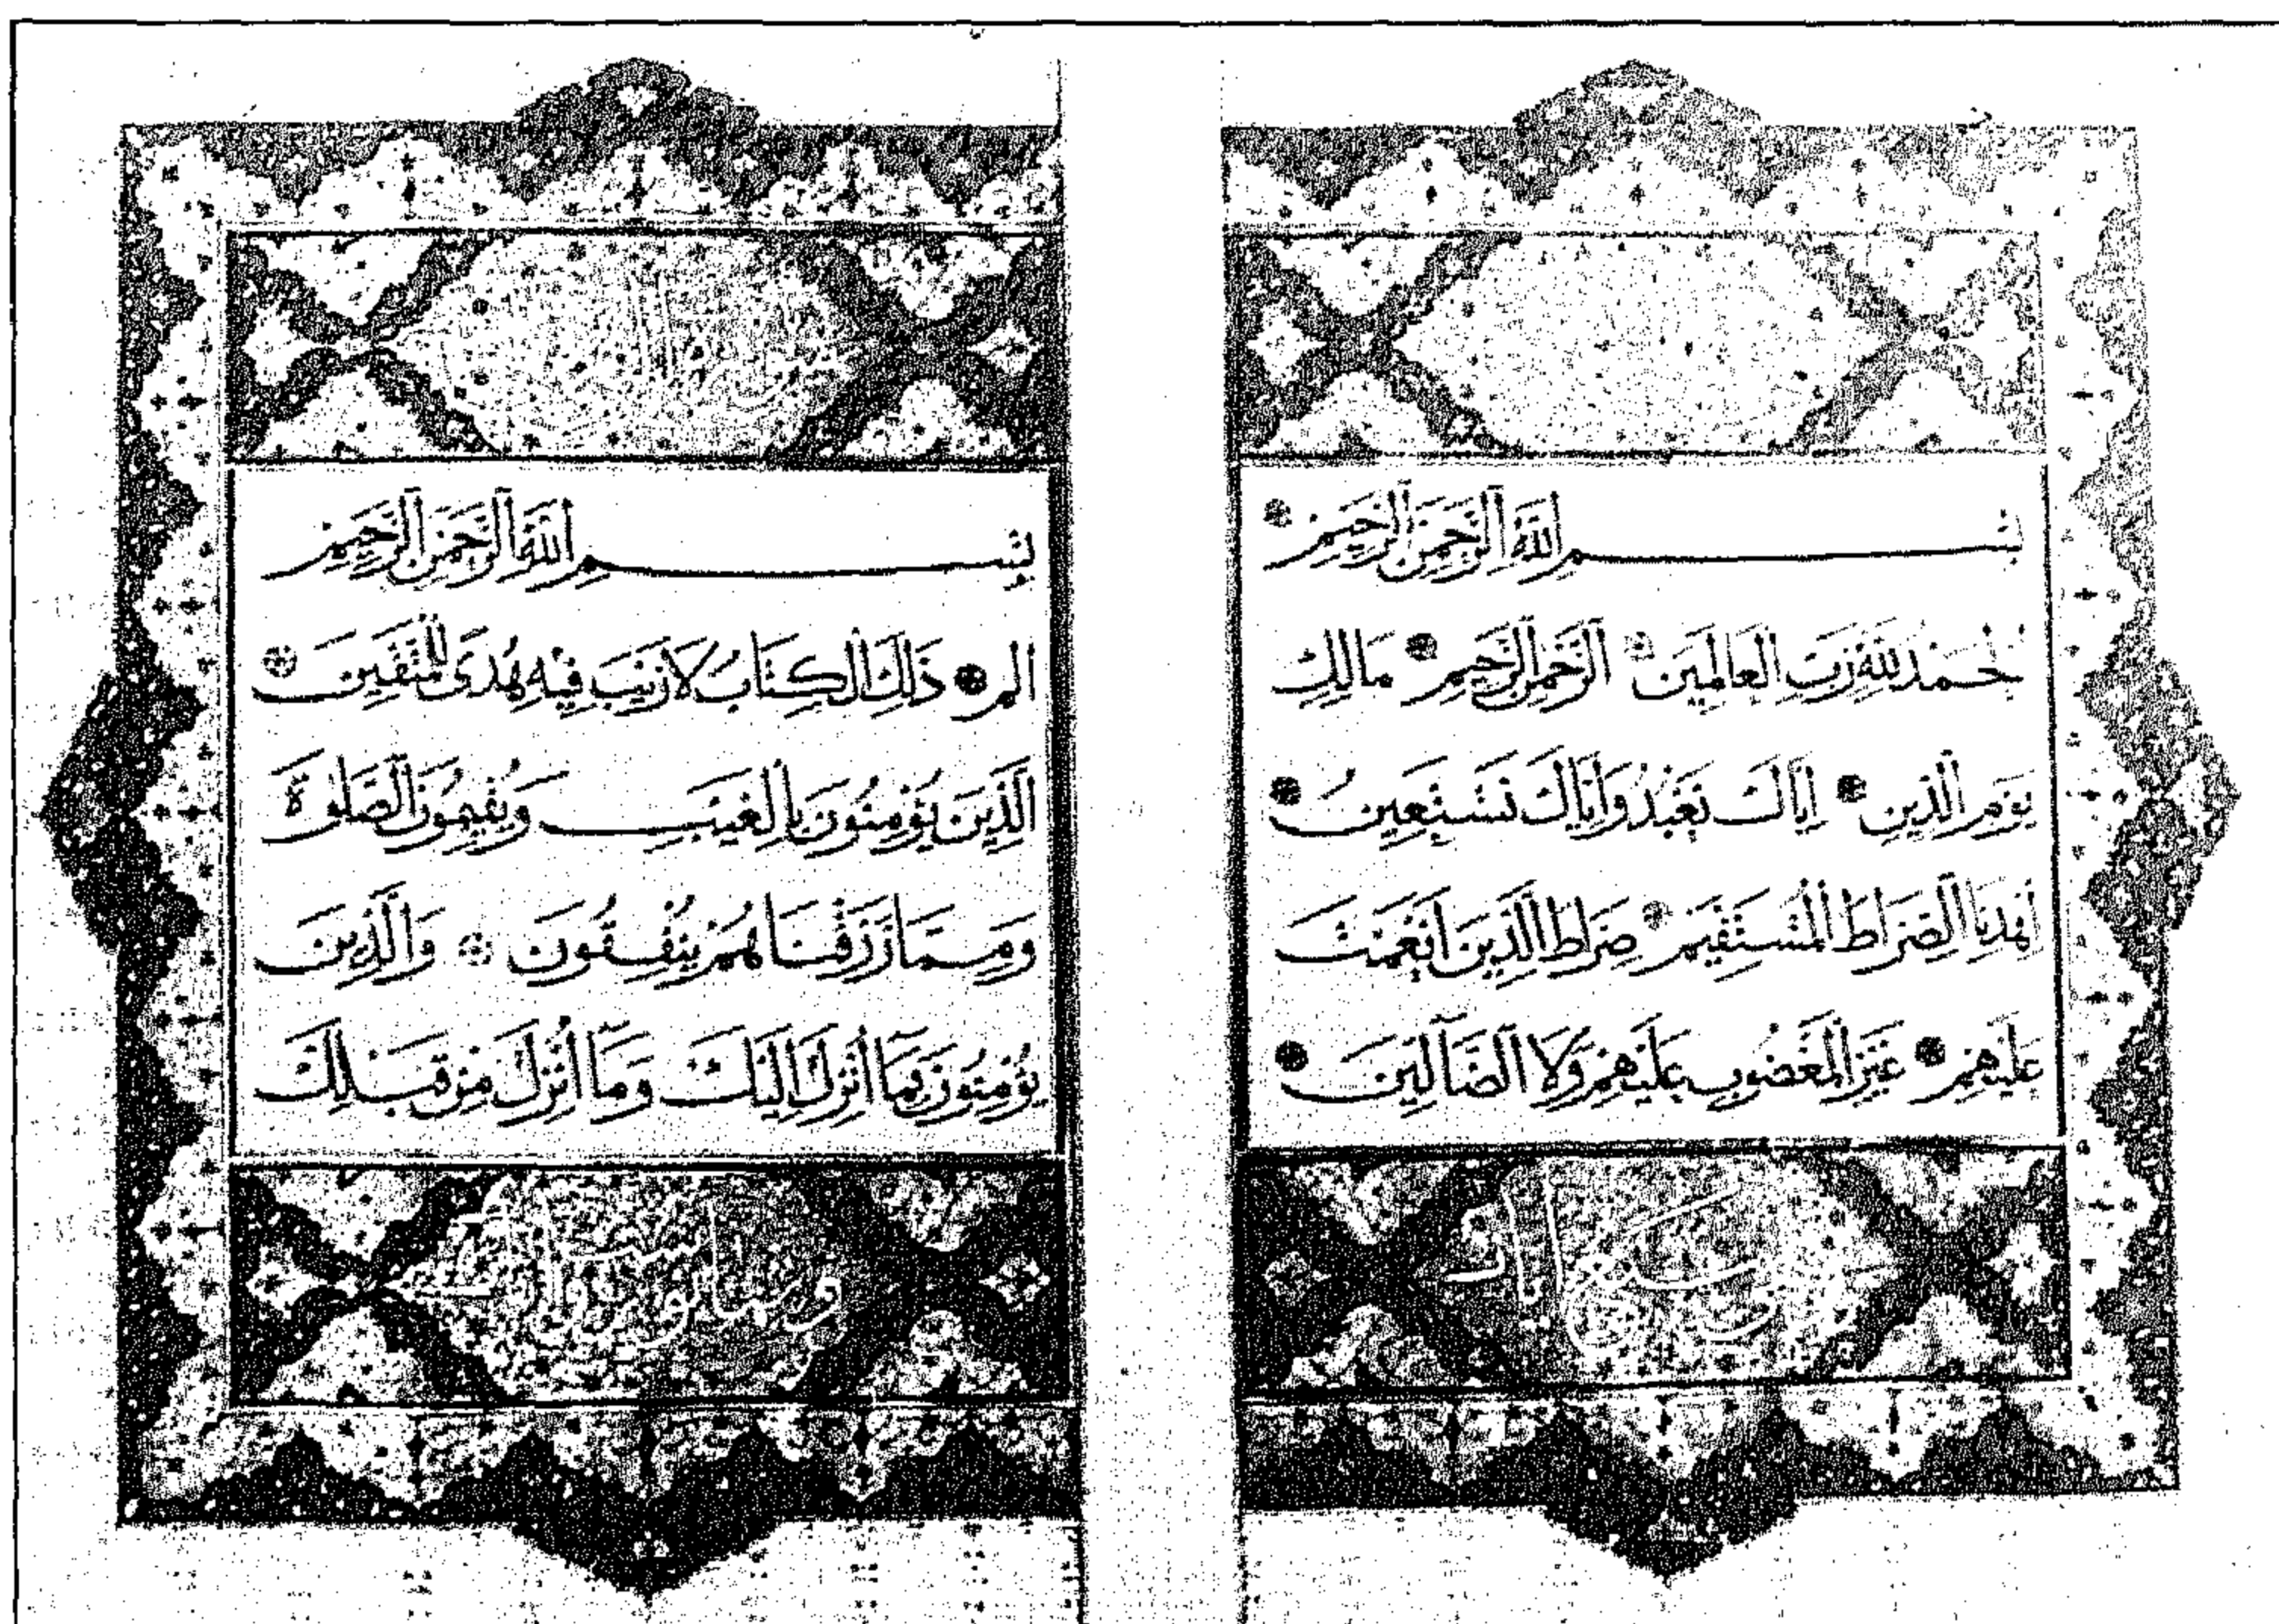 بِسْمِ اللَّهِ الرَّحْمَنِ الرَّحِيمِ
الْحَمْدُ لِلَّهِ رَبِّ الْعَالَمِينَ الرَّحْمَنِ الرَّحِيمِ مَالِكِ
يَوْمِ الدِّينِ إِيَّاكَ نَعْبُدُ وَإِيَّاكَ نَسْتَعِينُ
اهْدِنَا الصِّرَاطَ الْمُسْتَقِيمَ صِرَاطَ الَّذِينَ أَنْعَمْتَ
عَلَيْهِمْ غَيْرِ الْمَغْضُوبِ عَلَيْهِمْ وَلَا الضَّالِّينَ
بِسْمِ اللَّهِ الرَّحْمَنِ الرَّحِيمِ
الم ذَلِكَ الْكِتَابُ لَا رَيْبَ فِيهِ هُدًى لِلْمُتَّقِينَ
الَّذِينَ يُؤْمِنُونَ بِالْغَيْبِ وَيُقِيمُونَ الصَّلَوةَ
وَمِمَّا رَزَقْنَاهُمْ يُنْفِقُونَ وَالَّذِينَ
يُؤْمِنُونَ بِمَا أُنْزِلَ إِلَيْكَ وَمَا أُنْزِلَ مِنْ قَبْلِكَ